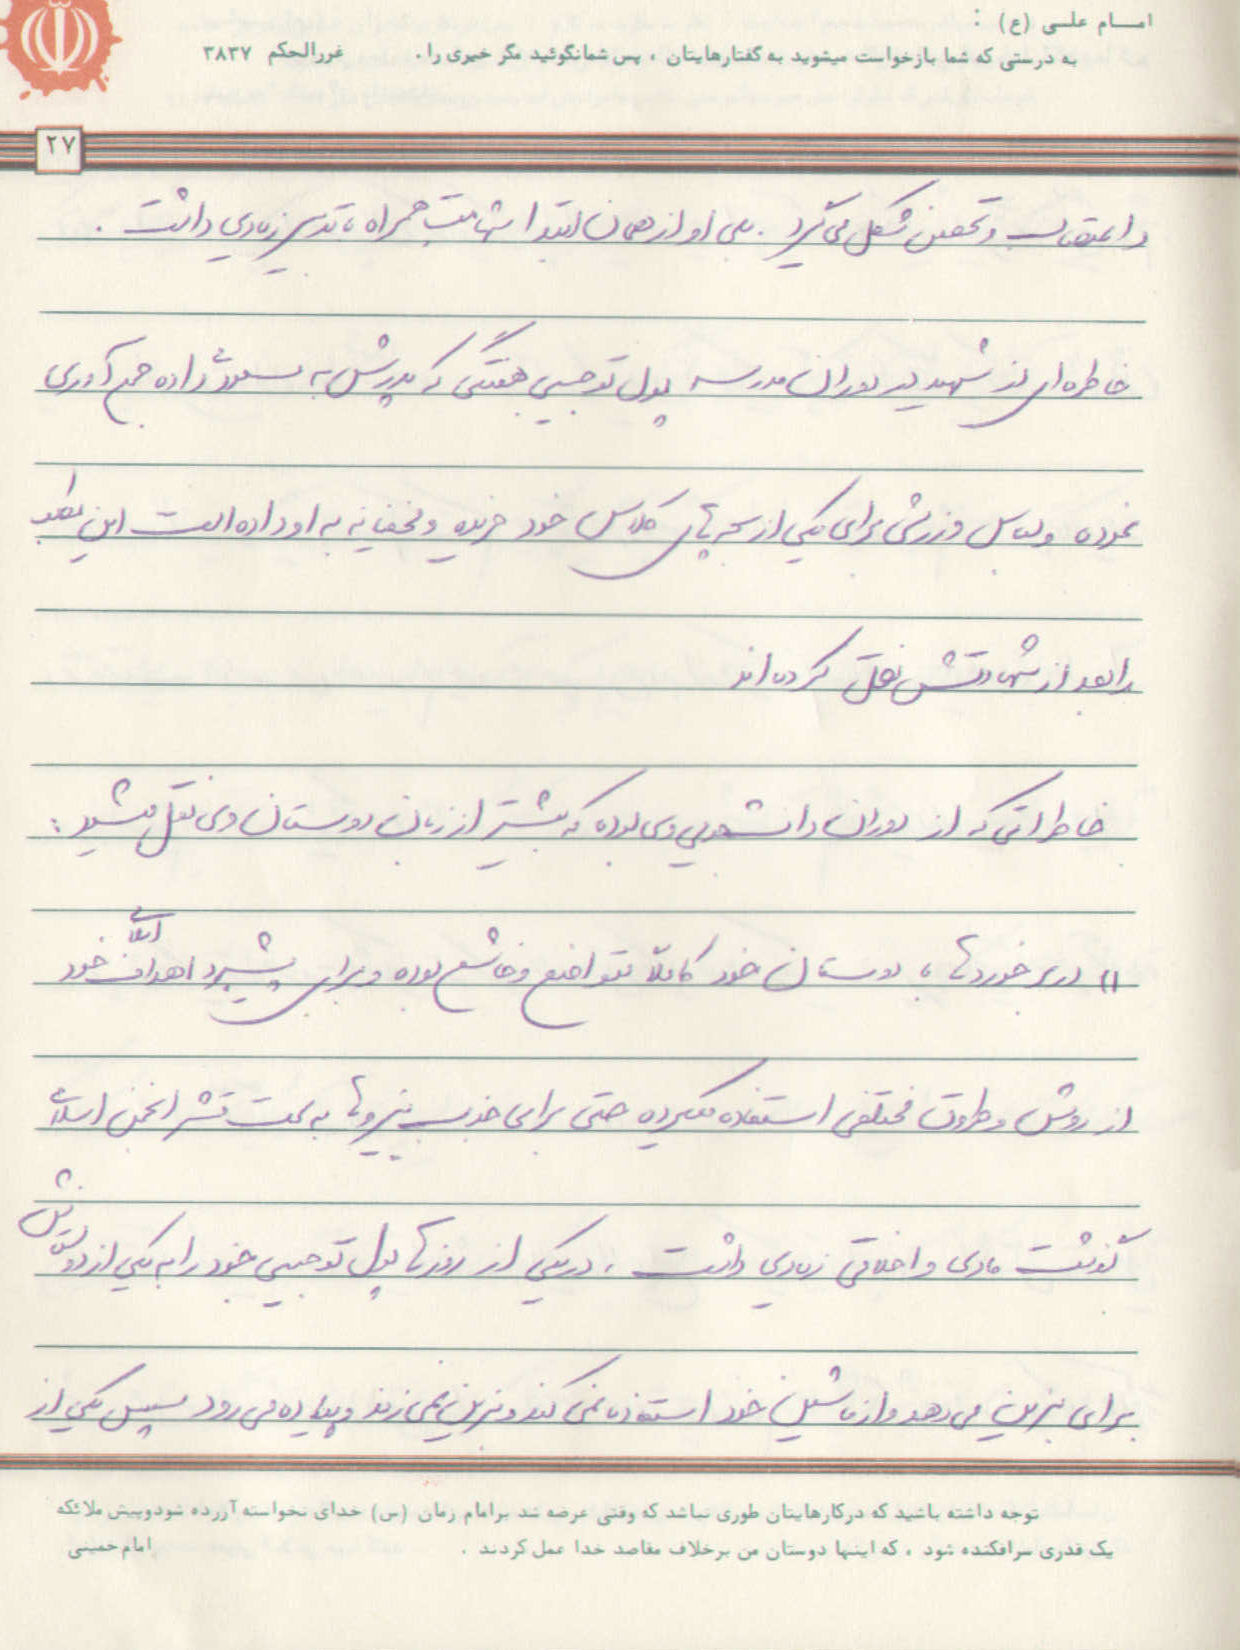 امام علی (ع) :
به درستی که شما بازخواست میشوید به گفتارهایتان ، پس شمانگوئید مگر خیری را . غررالحکم ۳۸۳۷
۲۷
و تحصن شکل می گیرد . بلی او از همان ابتدا شهامت همراه با تدبیر زیادی داشت .
خاطره ای از شهید در دوران مدرسه پول توجیبی هفتگی که پدرش به مسعود داده جمع آوری
نموده و لباس ورزشی برای یکی از بچه های کلاس خود خریده و مخفیانه به او داده است این مطلب
را بعد از شهادتش نقل کرده اند
خاطراتی که از دوران دانشجویی وی بوده که بیشتر از زبان دوستان وی نقل میشود :
۱) در برخوردها با دوستان خود کاملاً متواضع و خاشع بوده و برای پیشبرد اهداف اسلامی خود
از روش و طرق مختلفی استفاده میکرده حتی برای جذب نیروها به سمت قشر انجمن اسلامی
گذشت مادی و اخلاقی زیادی داشت ، در یکی از روزها پول توجیبی خود را به یکی از دوستانش
برای بنزین می دهد و از ماشین خود استفاده نمی کند و بنزین نمی زند و پیاده می رود سپس یکی از
توجه داشته باشید که درکارهایتان طوری نباشد که وقتی عرضه شد برامام زمان (س) خدای نخواسته آزرده شودوپیش ملائکه
یک قدری سرافکنده شود ، که اینها دوستان من برخلاف مقاصد خدا عمل کردند . امام خمینی